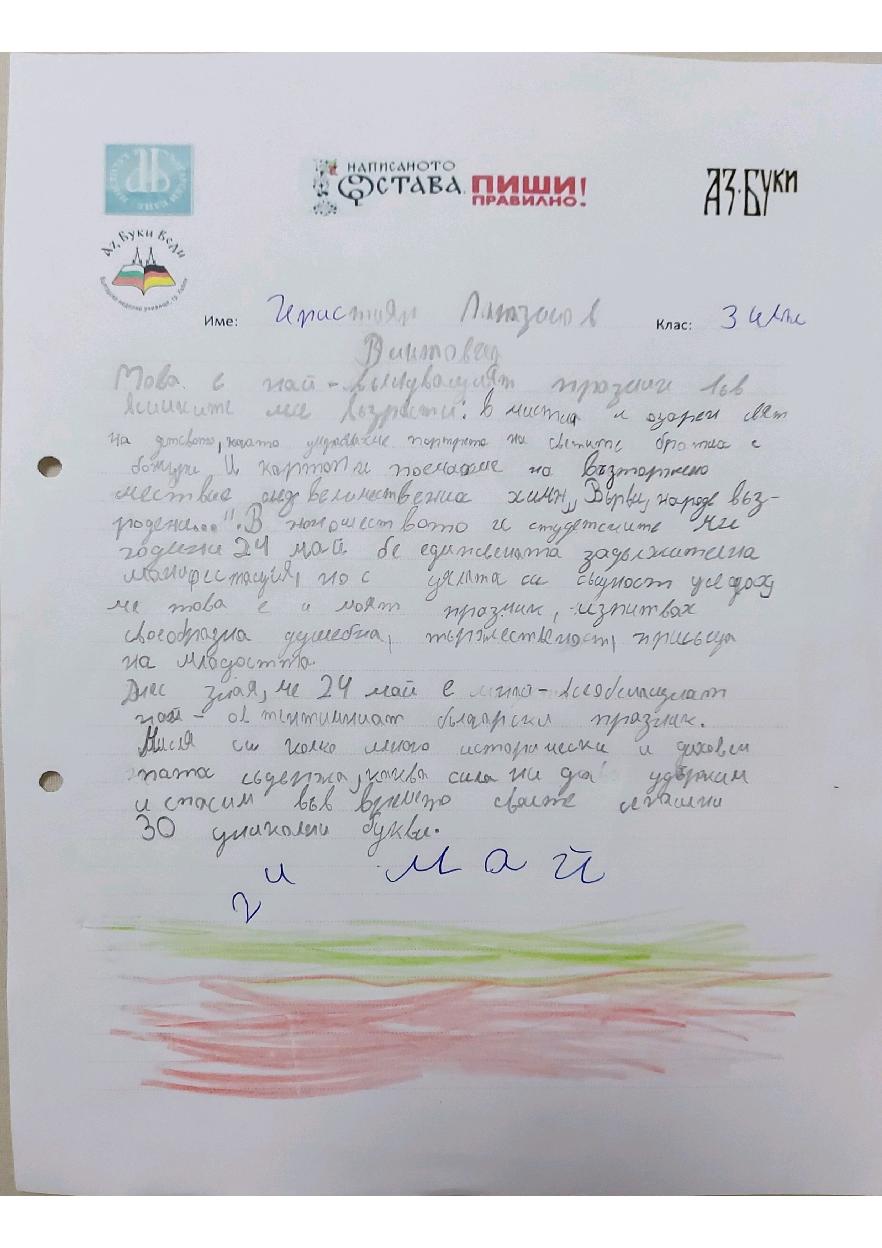 НАПИСАНОТО
ОСТАВА. ПИШИ!
ПРАВИЛНО!
АЗ·БУКИ
Аз, Буки Веди
Име: Кристиян Клас: 3 клас
Това е най-вълнуващият празник във
всичките ми възрасти: в чистия и озарен свят
на детството, когато украсявахме портрета на светите братя с
божури и картонки посягахме на възторжено
шествие след величествения химн „Върви, народе въз-
родени...". В юношеството и студентските ми
години 24 май бе единствената задължителна
манифестация, но с цялата си същност усещах
че това е и моят празник, изпитвах
своеобразна душевна, тържественост, присъща
на младостта.
Днес зная, че 24 май е
най- български празник.
Мисля си колко много исторически и духовен
съдържа, каква сила ни да удържим
и спасим във времето своите
30 уникални букви.
24 май